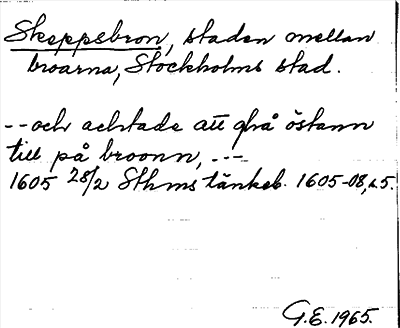 Skeppsbron, staden mellan
broarna, Stockholms stad.
-- och achtade att ghå östann
till på broonn, ---
1605 28/2 Sthms tänkeb. 1605-08, s. 5.
G.E. 1965.